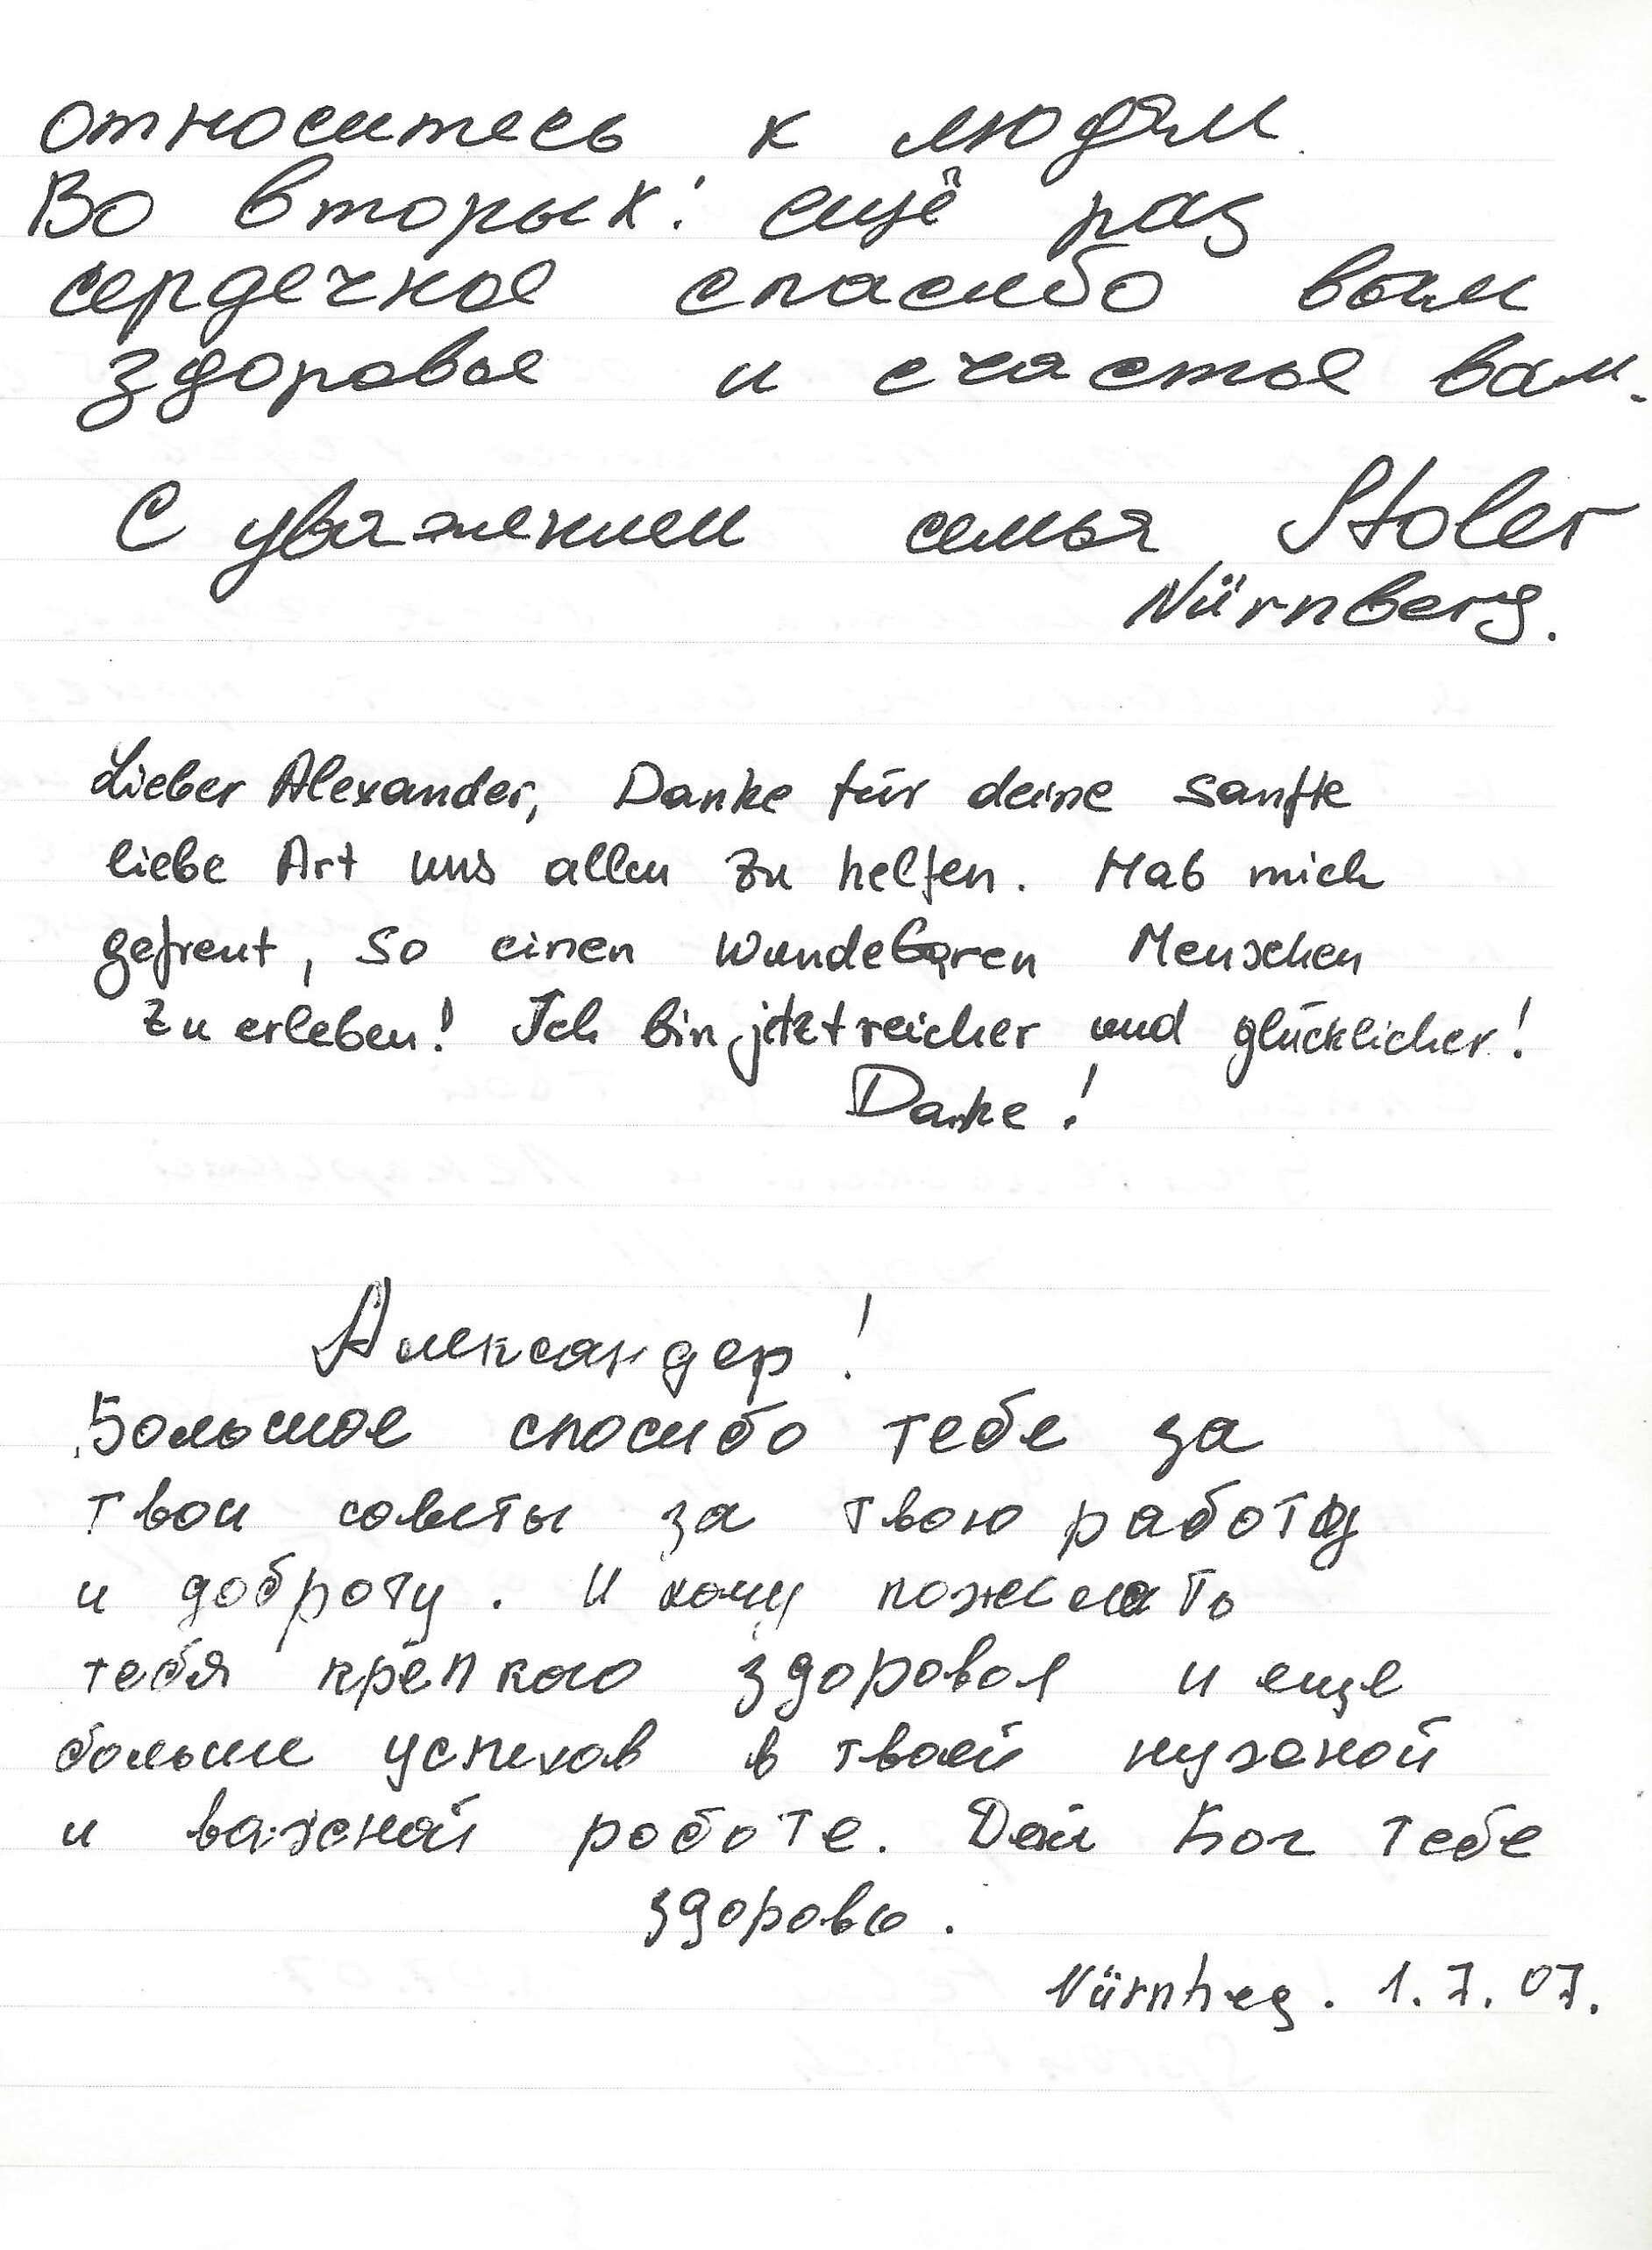 относитесь к людям.
Во вторых: ещё раз
сердечное спасибо вам
здоровье и счастье вам.
С уважением семья Stoler
Nürnberg.
Lieber Alexander, Danke für deine sanfte
liebe Art uns allen zu helfen. Hab mich
gefreut, so einen wundebaren Menschen
zu erleben! Ich bin jetzt reicher und glücklicher!
Danke!
Александер!
Большое спосибо тебе за
твои советы за твою работу
и доброту. И хочу пожелать
тебя крепкого здоровья и еще
больши успехов в твоей нужной
и важной роботе. Дай Бог тебе
здоровье.
Nürnberg. 1.7.07.